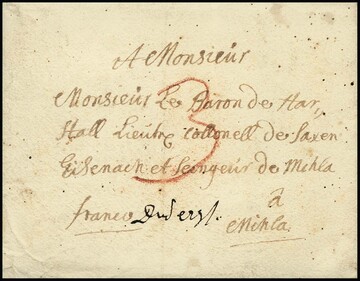 A Monsieur
Monsieur Le Baron de Har„
Hall Lieutx Collonell de Saxen
Eisenach et Seingeur de Mihla
3
â
franco Duderst.
Mihla.